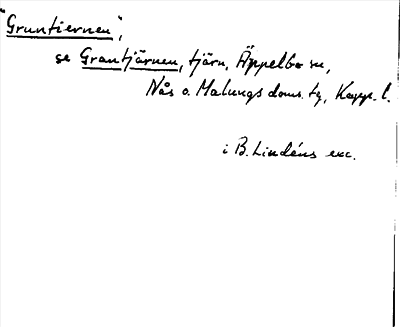 "Gruntiernen",
se Grantjärnen, tjärn, Äppelbo sn,
Nås o. Malungs doms. tg, Kopp. l.
i B. Lindéns exc.